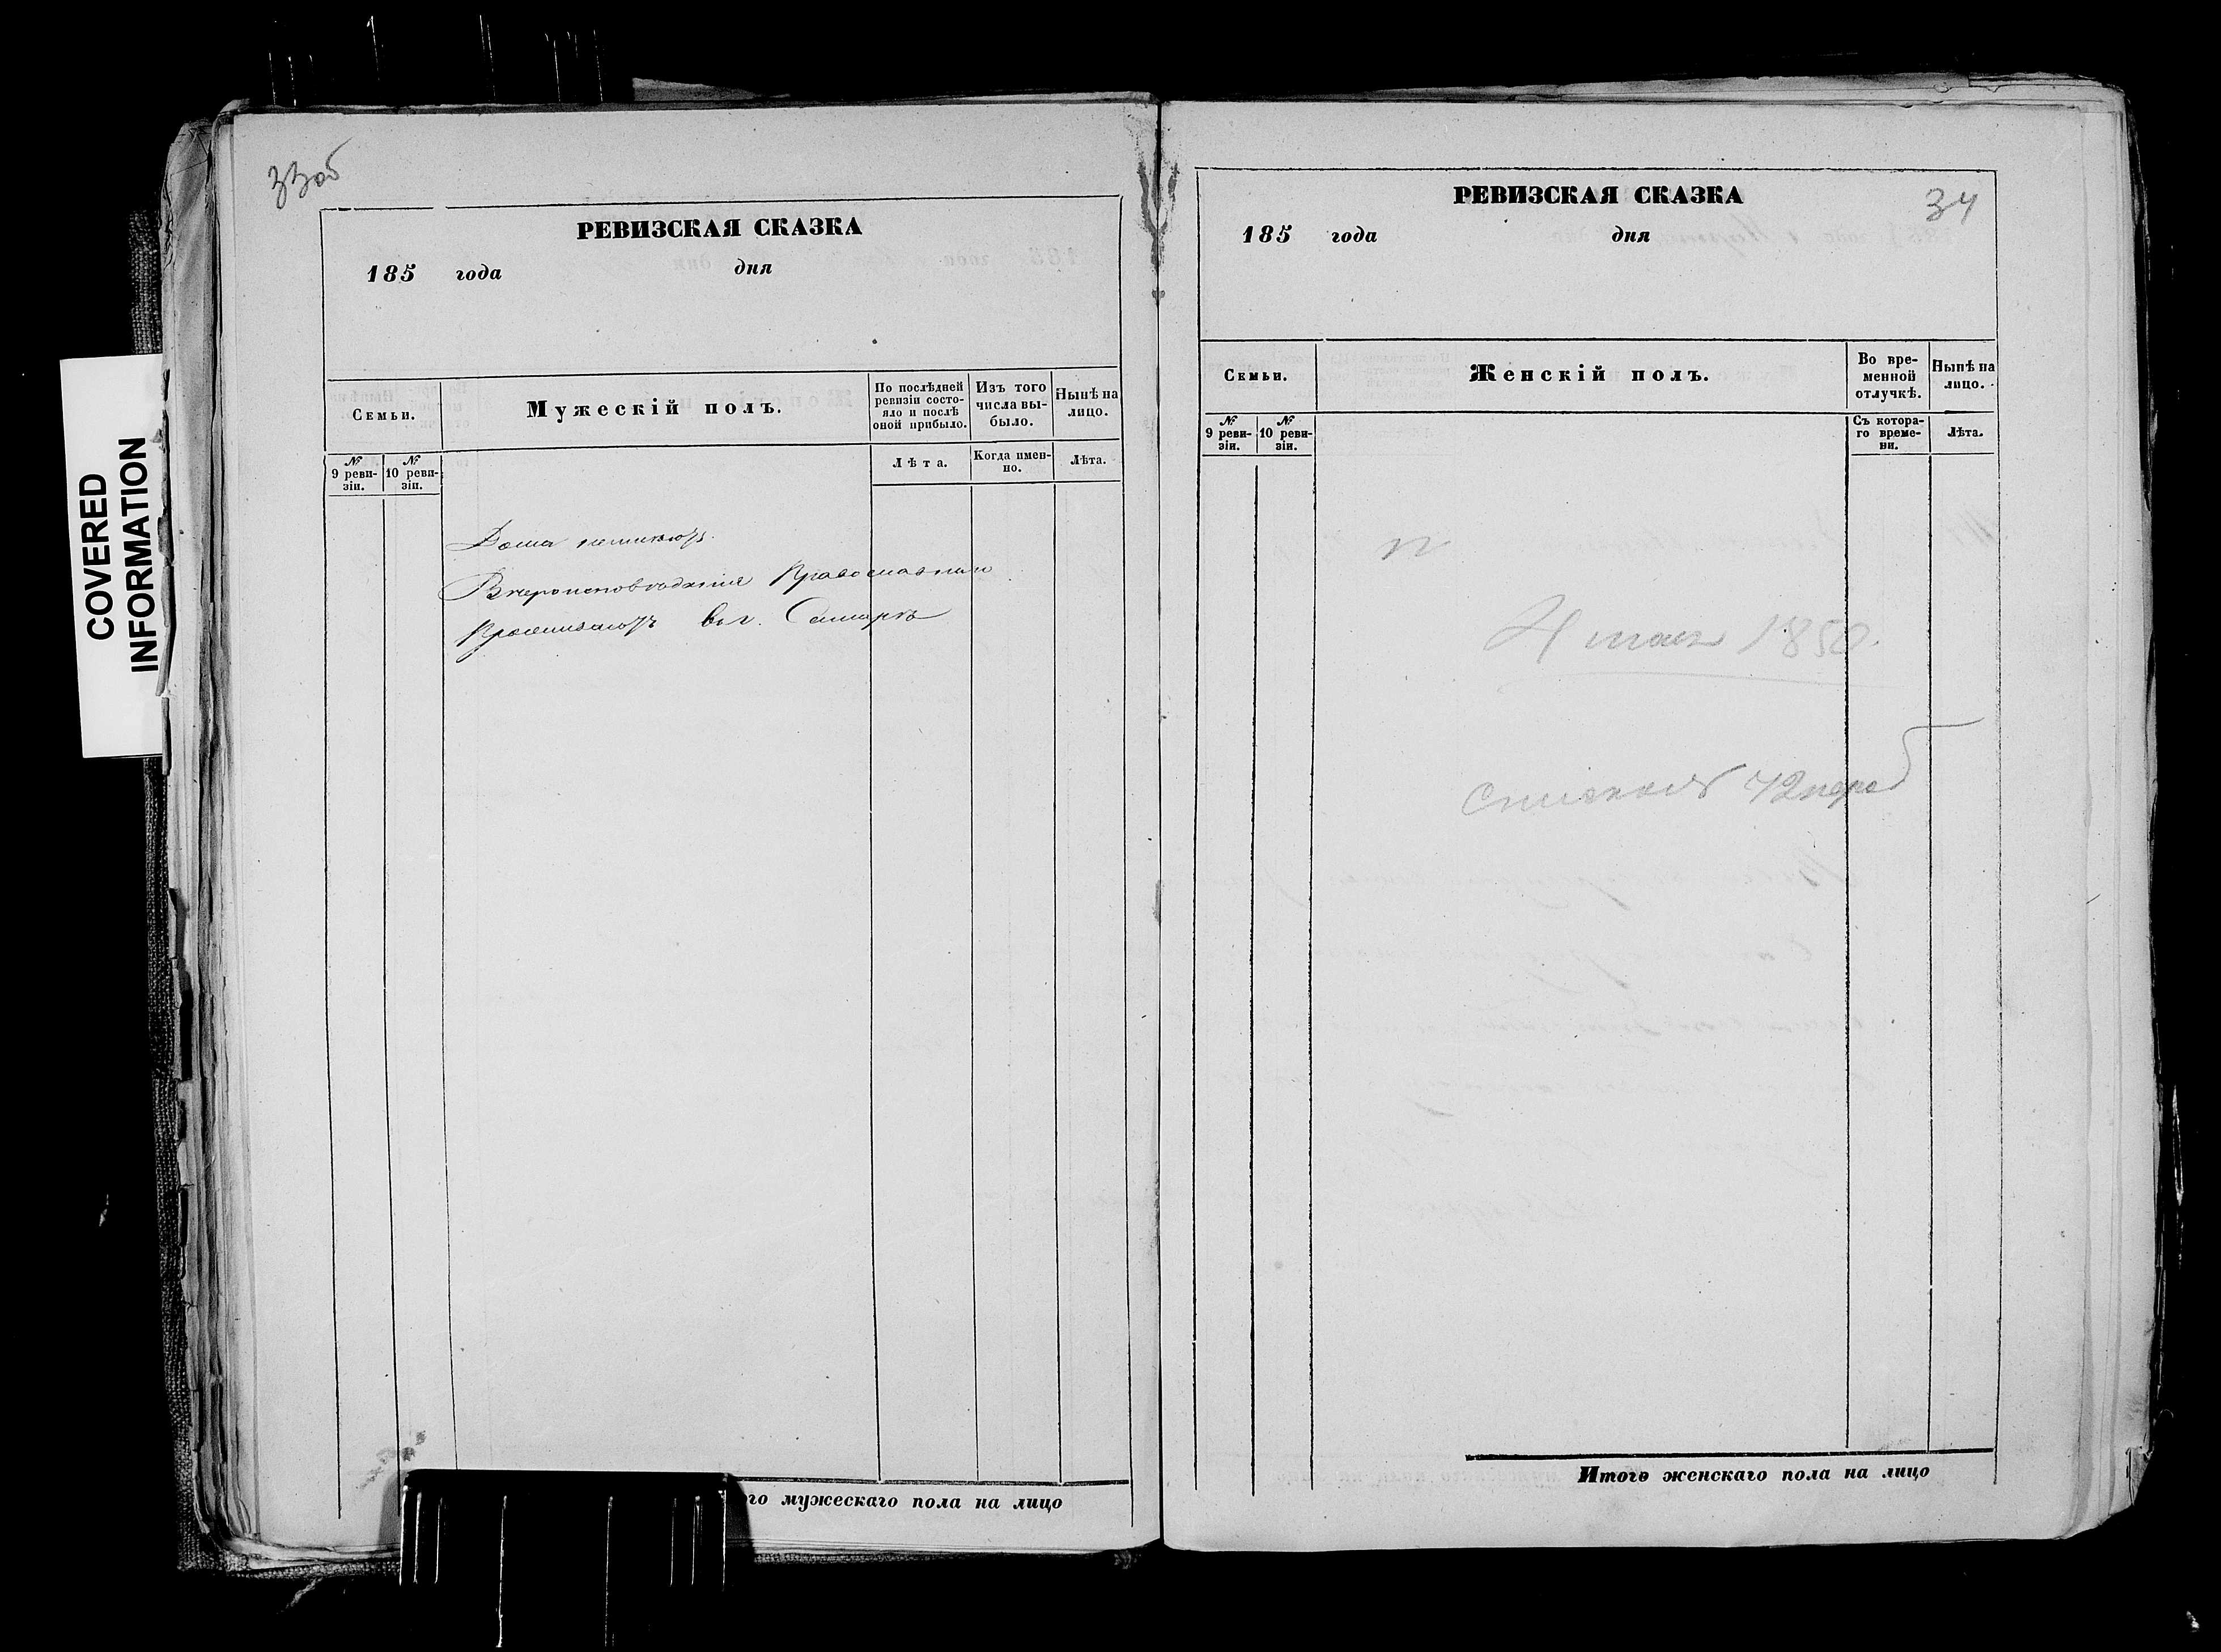 COVERED
INFORMATION
33об
РЕВИЗСКАЯ СКАЗКА
185 года дня
Семьи.
Мужескій полъ.
По послѣдней ревизіи состо-
яло и послѣ
оной прибыло.
Изъ того
числа вы-
было.
Нынѣ на
лицо.
№
9 реви-
зіи.
№
10 реви-
зіи.
Лѣта.
Когда имен-
но.
Лѣта.
Дома неимѣютъ.
Вѣроисповѣданія Православнаго
Проживаютъ въ г. Самарѣ
го мужескаго пола на лицо
34
РЕВИЗСКАЯ СКАЗКА
185 года дня
Семьи.
Женскій полъ.
Во вре-
менной
отлучкѣ.
Нынѣ на
лицо.
№
9 реви-
зіи.
№
10 реви-
зіи.
Съ котора-
го време-
ни.
Лѣта.
1850.
Итого женскаго пола на лицо